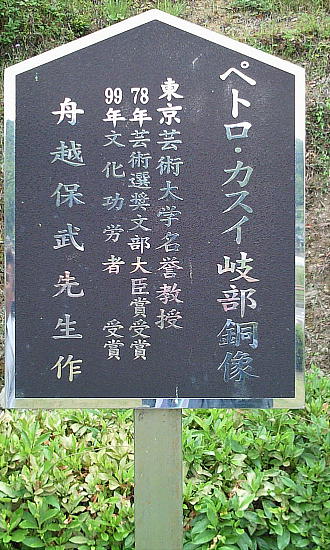 ペトロ・カスイ岐部銅像
東京芸術大学名誉教授
78年芸術選奨文部大臣賞受賞
99年文化功労者 受賞
舟越保武先生作